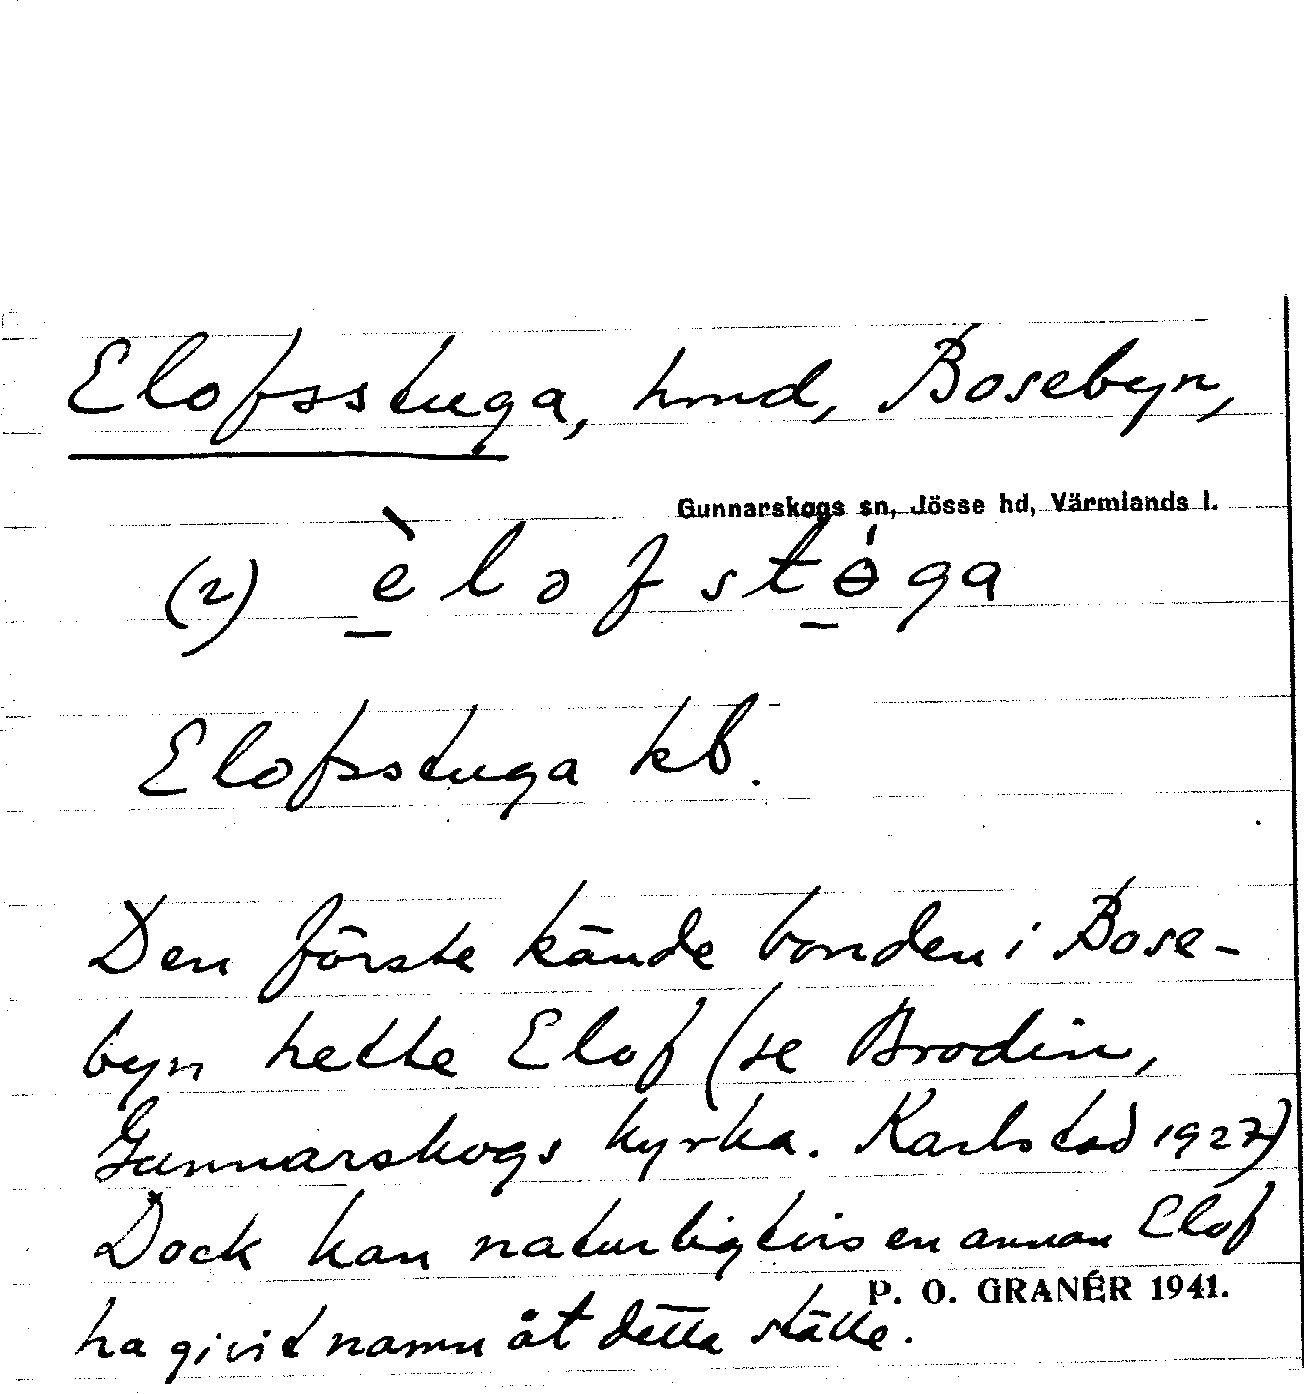 Elofsstuga, hmd, Bosebyn,
Gunnarskogs sn, Jösse hd, Värmlands l.
(2) èlofstɵ́ga
Elofsstuga kb.
Den förste kände bonden i Bose-
byn hette Elof (se Brodin,
Gunnarskogs kyrka. Karlstad 1927)
Dock kan naturligtvis en annan Elof
P. O. GRANÉR 1941.
ha givit namn åt detta ställe.